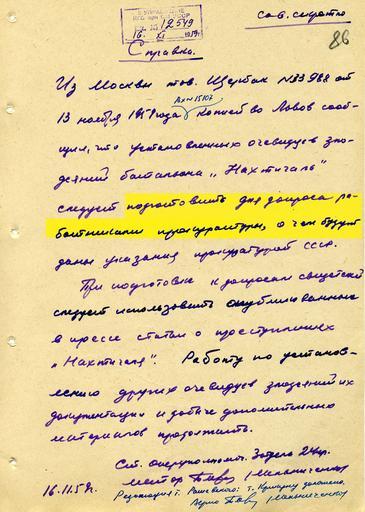 сов. секретно
86
12549
16 XI 1959г.
Справка.
Из Москвы тов. Щербак №33988 от
Вх №15107
13 ноября 1959 года копией во Львов сооб-
щил, что установленных очевидцев зло-
деяний батальона „Нахтигаль"
следует подготовить для допроса ра-
ботниками прокуратуры, о чем будут
даны указания прокуратурой СССР.
При подготовке к допросам свидетелей
следует использовать опубликованные
в прессе статьи о преступлениях
„Нахтигаля". Работу по установ-
лению других очевидцев злодеяний их
документации и добыче дополнительных
материалов продолжать.
Ст. оперуполномоч. 3 отдела 2 упр.
майор
16.11.59г.
Резолюция т.